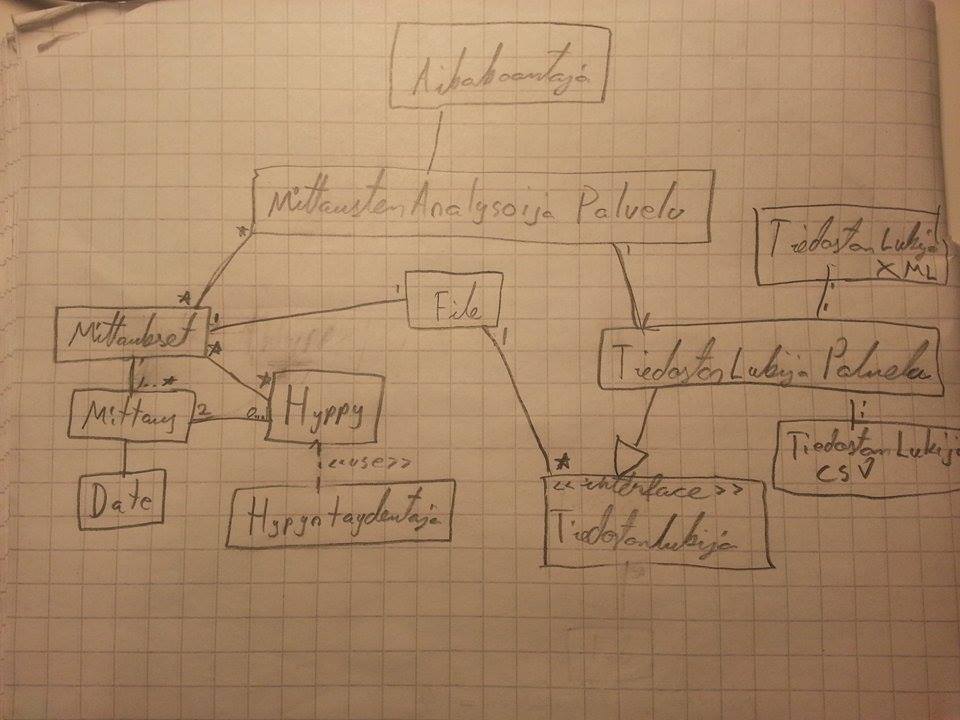 Aikakoantaja
Mittausten Analysoija Palvelu
*
1
Tiedoston Lukija
XML
*
1
File
Mittaukset
1
*
1
Tiedoston Lukija Palvelu
1..*
*
Mittaus
2
0..
Hyppy
1
<<use>>
*
Tiedoston Lukija
CSV
Date
Hypyntaydentaja
<<interface>>
Tiedostonlukija